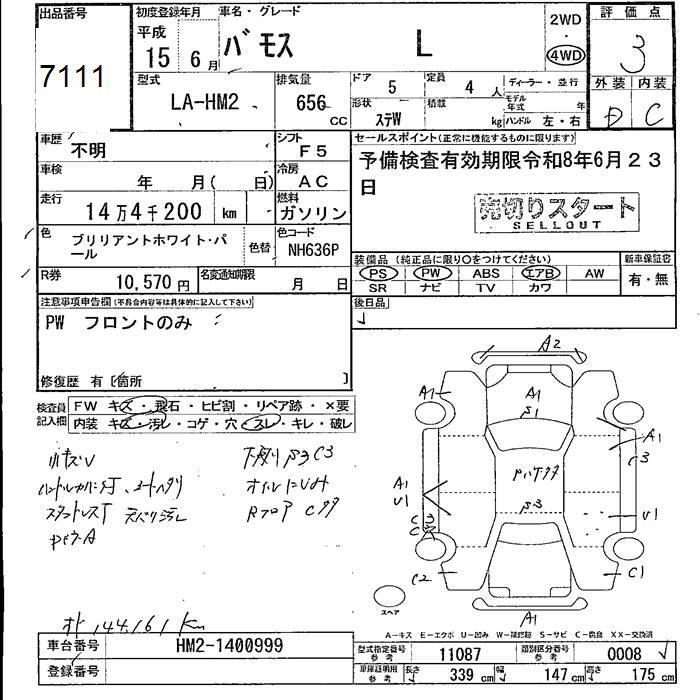 出品番号
7111
初度登録年月
平成
15 6月
車名・グレード
バモス L
2WD
・
4WD
評価点
3
外装 内装
D C
型式
LA-HM2
排気量
656 cc
ドア 5
定員 4 人
ディーラー・並行
形状 ステW
積載 kg
モデル年式 年
ハンドル 左・右
車歴 不明
シフト F5
車検 年 月( 日)
冷房 AC
走行 14万4千200 km
燃料 ガソリン
色 ブリリアントホワイト・パール
色替
色コード NH636P
R券 10,570円
名変通知期限 月 日
セールスポイント(正常に機能するものに限ります)
予備検査有効期限令和8年6月23
日
売切りスタート
SELLOUT
装備品(純正品に限り○をつけてください)
新車保証書
PS PW ABS エアB AW
有・無
SR ナビ TV カワ
後日品
注意事項申告欄(不具合内容等は具体的に記入して下さい)
PW フロントのみ
修復歴 有〔箇所 〕
検査員記入欄
FW キズ・飛石・ヒビ割・リペア跡・×要
内装 キズ・汚レ・コゲ・穴・スレ・キレ・破レ
小キズU
下廻りサ3C3
A2
A1
A1
A1
C3
A1
U1
U1
C2
C1
A1
スペア
オド 144,161 Km
A-キズ E-エクボ U-凹み W-補修跡 S-サビ C-腐食 XX-交換済
車台番号 HM2-1400999
登録番号
型式指定番号 参考 11087
類別区分番号 参考 0008
車庫証明用 参考 長さ 339 cm 幅 147 cm 高さ 175 cm